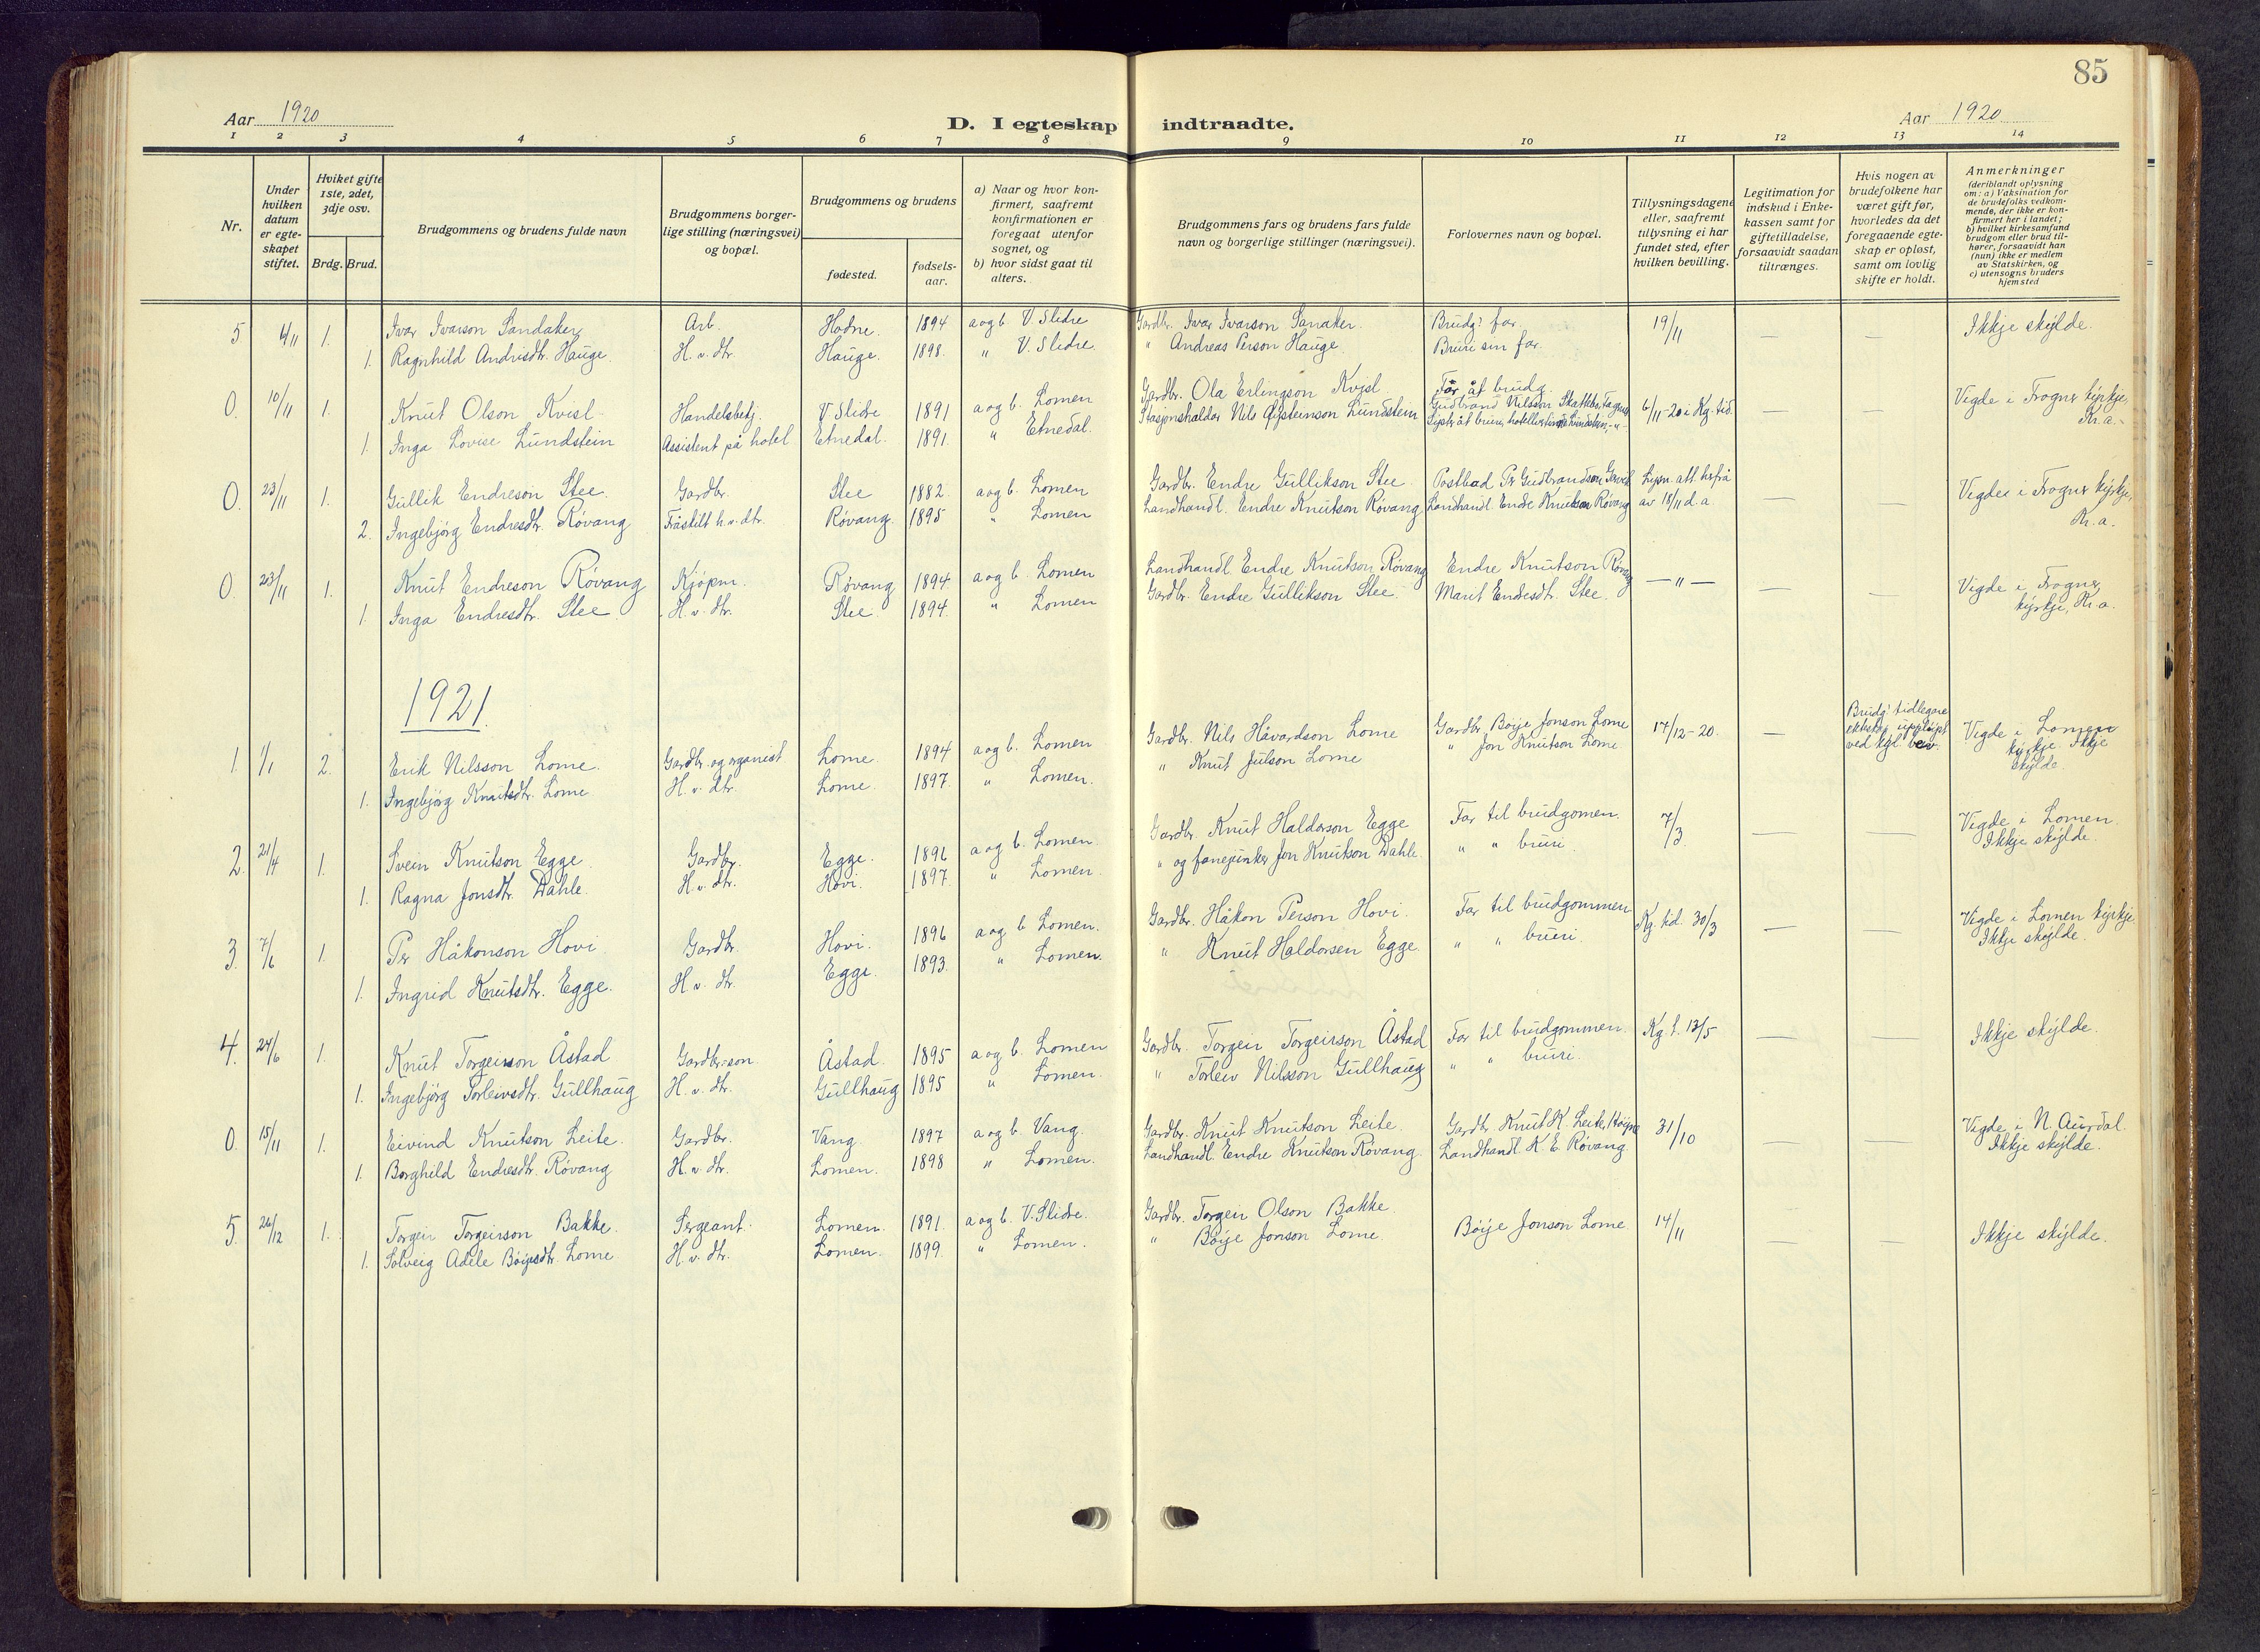 85
Aar 1920
D. I egteskap indtraadte.
Aar 1920
1 2 3 4 5 6 7 8 9 10 11 12 13 14
Nr.
Under hvilken datum er egteskapet stiftet.
Hviket gifte 1ste, 2det, 3dje osv.
Brdg. Brud.
Brudgommens og brudens fulde navn
Brudgommens borgerlige stilling (næringsvei) og bopæl.
Brudgommens og brudens
fødested.
fødselsaar.
a) Naar og hvor konfirmert, saafremt konfirmationen er foregaat utenfor sognet, og
b) hvor sidst gaat til alters.
Brudgommens fars og brudens fars fulde navn og borgerlige stillinger (næringsvei).
Forlovernes navn og bopæl.
Tillysningsdagene eller, saafremt tillysning ei har fundet sted, efter hvilken bevilling.
Legitimation for indskud i Enkekassen samt for giftetilladelse, forsaavidt saadan tiltrænges.
Hvis nogen av brudefolkene har været gift før, hvorledes da det foregaaende egteskap er opløst, samt om lovlig skifte er holdt.
Anmerkninger
(deriblandt oplysning om: a) Vaksination for de brudefolks vedkommende, der ikke er konfirmert her i landet; b) hvilket kirkesamfund brudgom eller brud tilhører, forsaavidt han (hun) ikke er medlem av Statskirken, og c) utensogns bruders hjemsted
5 4/11 1. Ivar Ivarson Sandaker Arb. Hodne. 1894 a og b. V. Slidre Gardbr. Ivar Ivarson Sanaker. Brudg.s far. 19/11 — — Ikkje skylde.
1. Ragnhild Andrisdtr. Hauge. H. v. dtr. Hauge. 1898. " V. Slidre " Andreas Person Hauge. Bruri sin far.
0. 10/11 1. Knut Olson Kvisl Handelsbetj. V Slidre 1891 a og b. Lomen Gardbr. Ola Erlingson Kvisl Far åt brudg. 6/11-20 i Kg. tid. — — Vigde i Frogner kyrkje, Kr.a.
1. Inga Lovise Lundstein Assistent på hotel Etnedal. 1891. " Etnedal. Stasjonshaldar Nils Øysteinson Lundstein Gudbrand Nilsson Skattebo, Fagnes
Syster åt bruri, hotellvertinne Lundstein, -"-
0. 23/11 1. Gullik Endreson Slee. Gardbr. Slee 1882. a og b. Lomen Gardbr. Endre Gullikson Slee. Postbud Per Gudbrandson Lysn. att. herfrå — — Vigde i Frogner kyrkje, Kr.a.
2. Ingebjørg Endresdtr. Røvang Fråskilt h.v.dtr. Røvang. 1895 " Lomen Landhandl. Endre Knutson Røvang Landhandl. Endre Knutson Røvang av 18/11 d.a.
0. 23/11 1. Knut Endreson Røvang Kjøpm. Røvang 1894 a og b. Lomen Landhandl. Endre Knutson Røvang Endre Knutson Røvang — " — — — Vigde i Frogner kyrkje, Kr.a.
1. Inga Endresdtr. Slee. H. v. dtr. Slee. 1894. " Lomen Gardbr. Endre Gullikson Slee. Marit Endresdtr. Slee.
1921.
1. 1/1 2. Erik Nilsson Lome. Gardbr. og organist. Lome. 1894 a og b. Lomen Gardbr. Nils Håvardson Lome Gardbr. Bøije Jonson Lome 17/12-20. — Brudg.s tidlegare ekteskap uppløyst ved kgl. bev. Vigde i Lomen kyrkje Ikkje skylde.
1. Ingebjørg Knutsdtr. Lome H. v. dtr. Lome. 1897. " Lomen. " Knut Julson Lome " Jon Knutson Lome
2. 21/4 1. Svein Knutson Egge. Gardbr. Egge. 1896 a og b. Lomen Gardbr. Knut Halderson Egge Far til brudgomen. 7/3. — — Vigde i Lomen. Ikkje skylde.
1. Ragna Jonsdtr. Dahle. H. v. dtr. Hovi. 1897. " Lomen. " og fanejunker Jon Knutson Dahle " " bruri.
3. 7/6 1. Per Håkonson Hovi Gardbr. Hovi. 1896 a og b Lomen. Gardbr. Håkon Person Hovi. Far til brudgommen Kg. tid. 30/3 — — Vigde i Lomen kyrkje. Ikkje skylde.
1. Ingrid Knutsdtr. Egge. H. v. dtr. Egge. 1893. " Lomen. " Knut Haldorsen Egge. " " bruri.
4. 24/6 1. Knut Torgeirson Åstad Gardbr.-son Åstad. 1895 a og b. Lomen Gardbr. Torgeir Torgeirson Åstad Far til brudgommen. Kg. t. 13/5 — — Ikkje skylde.
1. Ingebjørg Torleivsdtr. Gullhaug H. v. dtr. Gullhaug 1895 " Lomen. " Torleiv Nilsson Gullhaug " " bruri.
0. 15/11 1. Eivind Knutson Leite. Gardbr. Vang. 1897 a og b. Vang. Gardbr. Knut Knutson Leite. Gardbr. Knut K. Leite, Høgne 31/10 — — Vigde i N. Aurdal. Ikkje skylde.
1. Borghild Endresdtr. Røvang H. v. dtr. Lomen. 1898 " Lomen. Landhandl. Endre Knutson Røvang. Landhandl. K. E. Røvang.
5. 26/12 1. Torgeir Torgeirson Bakke. Sergeant. Lomen. 1891. a og b. V. Slidre. Gardbr. Torgeir Olson Bakke. Bøije Jonson Lome. 14/11 — — Ikkje skylde.
1. Solveig Adele Bøijesdtr. Lome H. v. dtr. Lomen. 1899. " Lomen. " Bøije Jonson Lome.